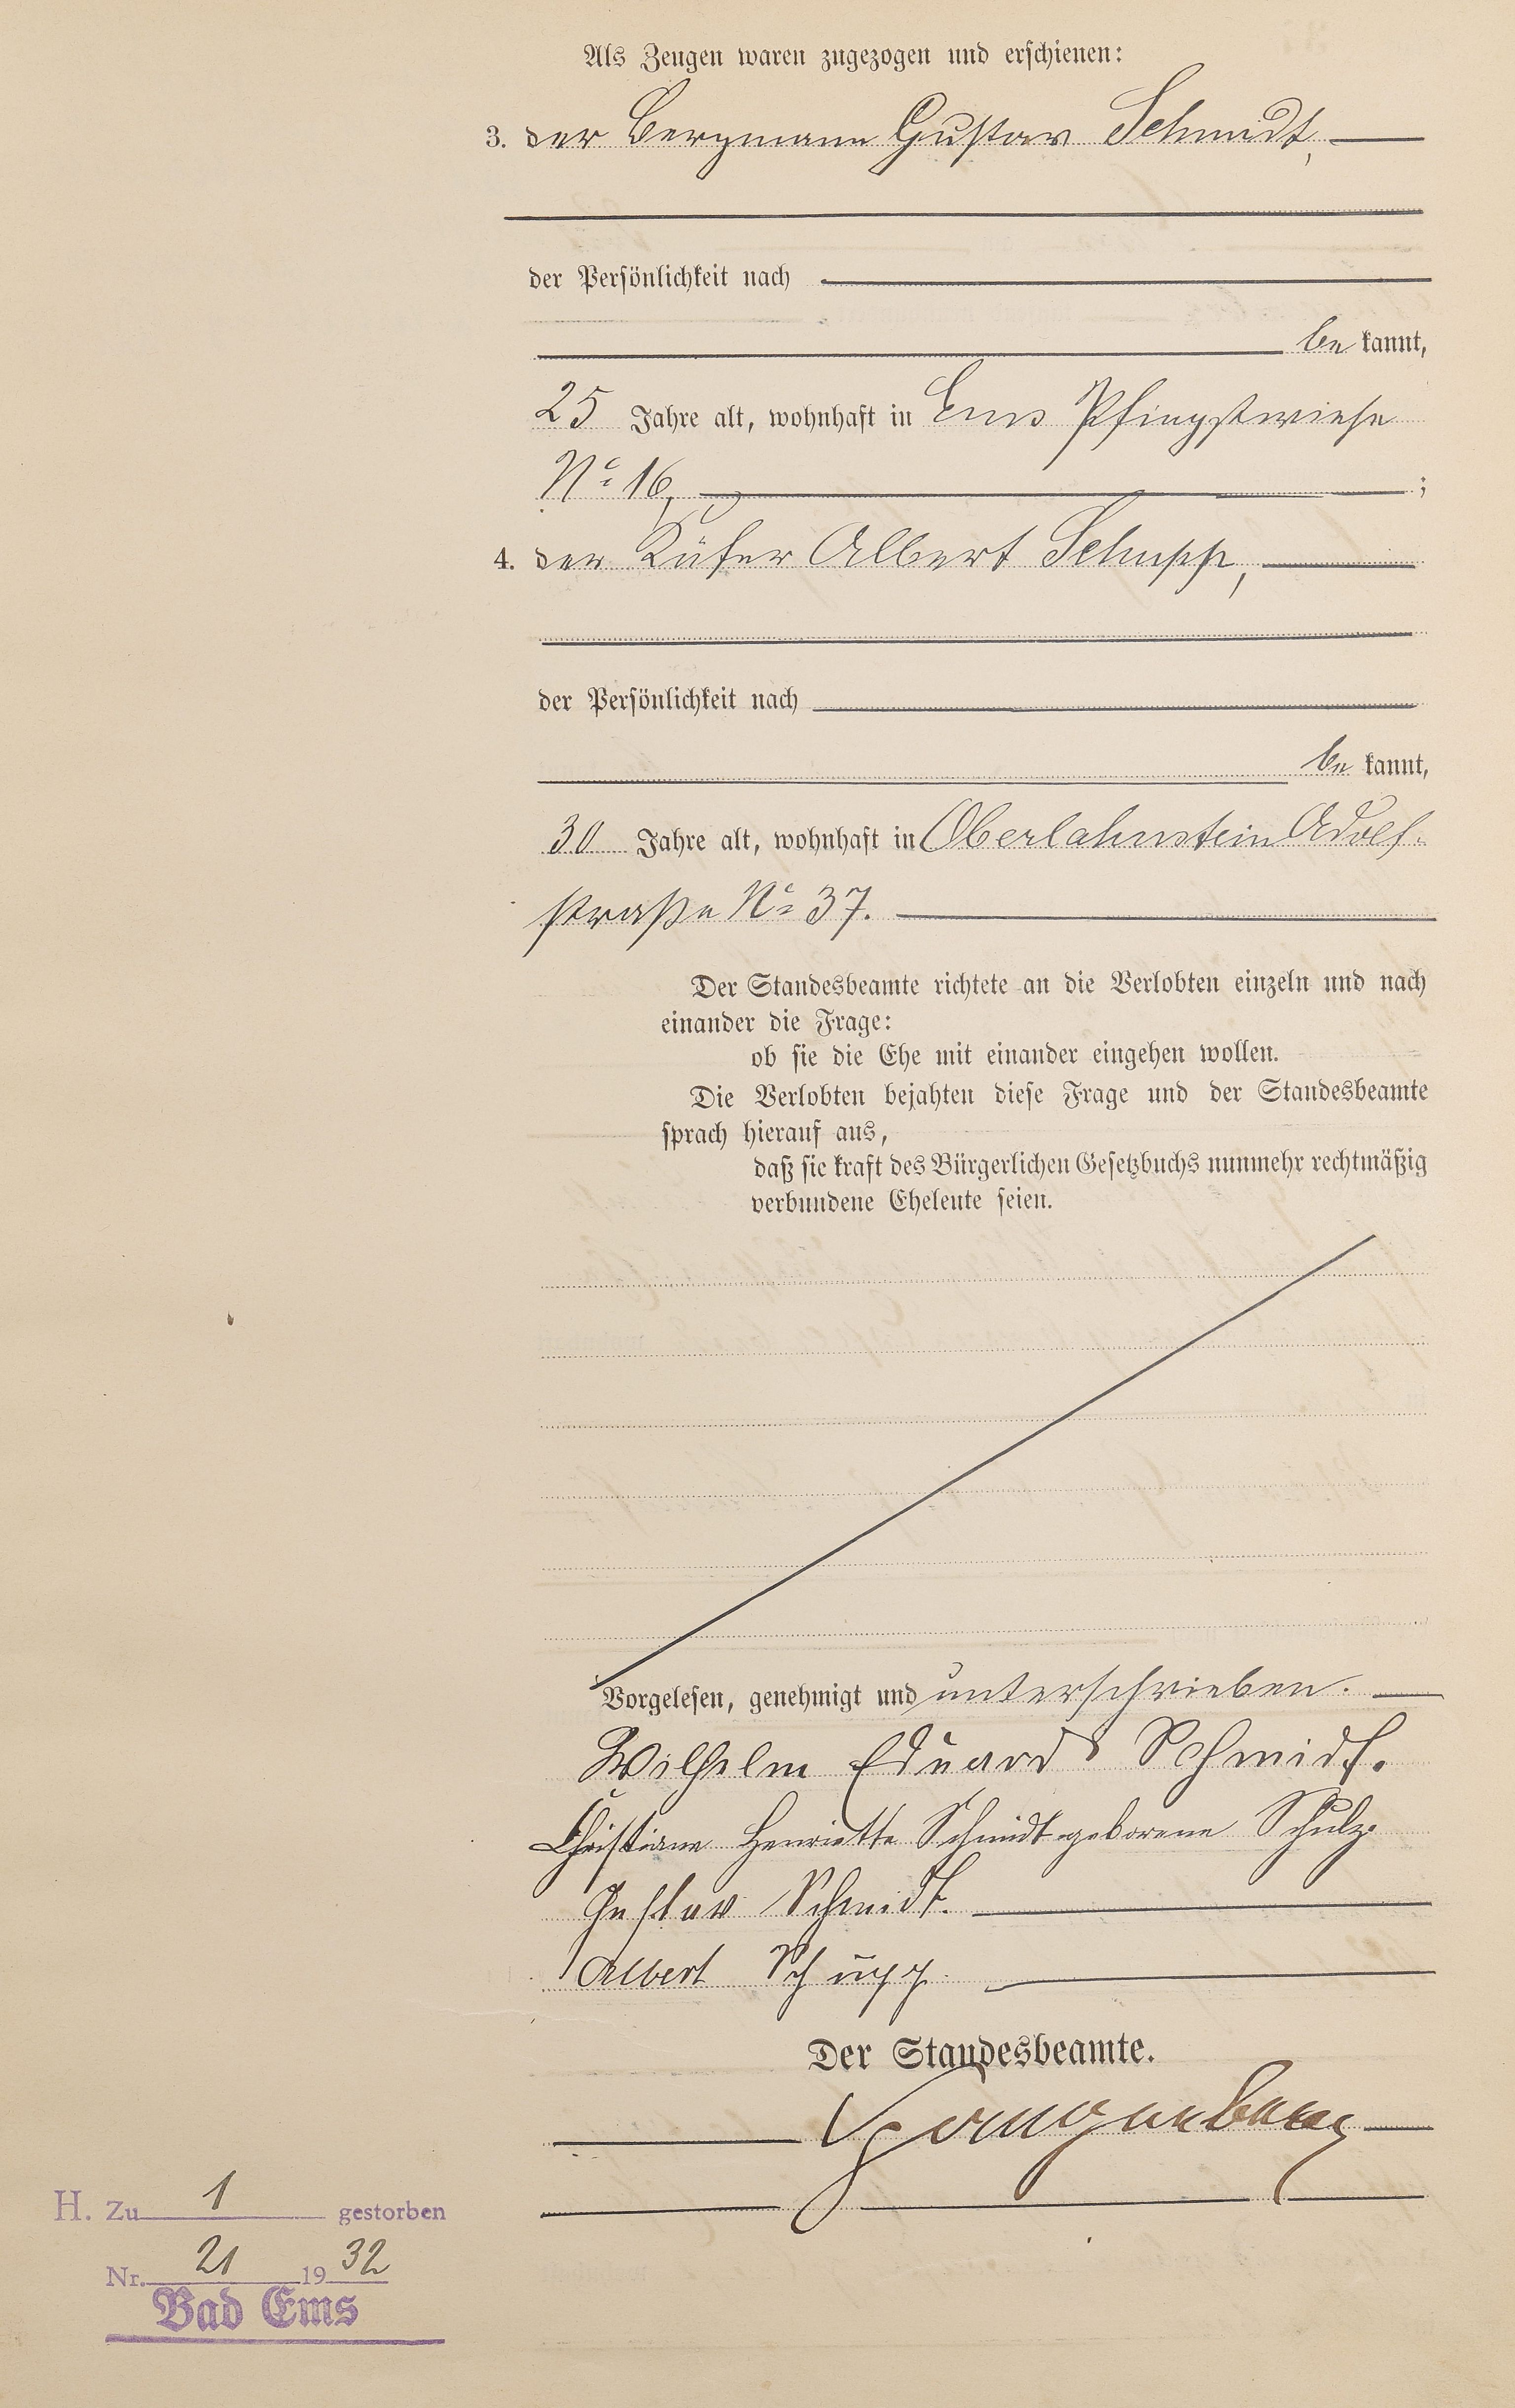 Als Zeugen waren zugezogen und erschienen:
3. der Bergmann Gustav Schmidt,
der Persönlichkeit nach
be kannt,
25 Jahre alt, wohnhaft in Ems Pfingstwiese
No 16, ;
4. der Küfer Albert Schupp,
der Persönlichkeit nach
be kannt,
30 Jahre alt, wohnhaft in Oberlahnstein Adolf-
straße No 37.
Der Standesbeamte richtete an die Verlobten einzeln und nach
einander die Frage:
ob sie die Ehe mit einander eingehen wollen.
Die Verlobten bejahten diese Frage und der Standesbeamte
sprach hierauf aus,
daß sie kraft des Bürgerlichen Gesetzbuchs nunmehr rechtmäßig
verbundene Eheleute seien.
Vorgelesen, genehmigt und unterschrieben.
Wilhelm Eduard Schmidt.
Christiane Henriette Schmidt geborene Schulz.
Gustav Schmidt.
Albert Schupp
Der Standesbeamte.
H. Zu 1 gestorben
Nr. 21 1932
Bad Ems